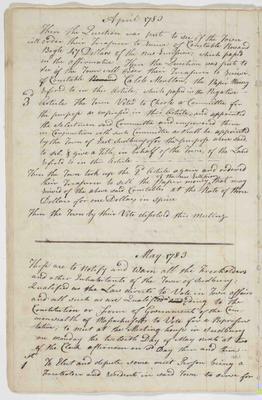 April 1783
Then the Question was put to see if the Town
will Order their Treasurer to receive of Constable
Bogle 47 Dollars of the new Emission, which passed
in the affirmative. Then the Question was put to
see if the Town will order their Treasurer to receive
of Constable Caleb Moulton the Paper Money
refered to in this Article, which passed in the Negative
3 Article The Town Voted to Choose a Committee for
the purpose as expressed in this Article, and appointed
the Selectmen said Committee and impowered them
in Conjunction with such Committee as shall be appointed
by the Town of East Sudbury for the purpose aforesaid
to sell & give a Title, in behalf of the Town, of the Land
refered to in this Article
Then the Town took up the Article again and ordered
their Treasurer to sell the Paper money that may
received of the above said Constables at the Rate of three
Dollars for one Dollar in Specie
Then the Town by their Vote dissolved this Meeting
May 1783
These are to Notify and Warn all the Freeholders
and other Inhabitants of the Town of Sudbury
Qualified as the Law directs to Vote in Town affairs
and all such as are Qualified according to the
Constitution or form of Government of the Com
monwealth of Massachusetts to Vote for a Represen
tative, to meet at the Meeting house in Sudbury
on monday the twelfth Day of May at two
of the Clock afternoon said Day then and there
1st To Elect and depute some meet Person being a
Freeholder and resident in said Town to serve for